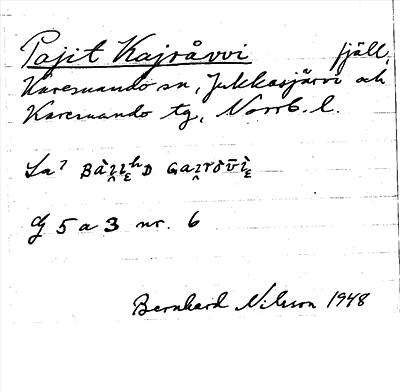 Pajit Kajsåvvi fjäll,
Karesuando sn, Jukkasjärvi och
Karesuando tg, Norrb. l.
G 5 a 3 nr. 6
Bernhard Nilsson 1948